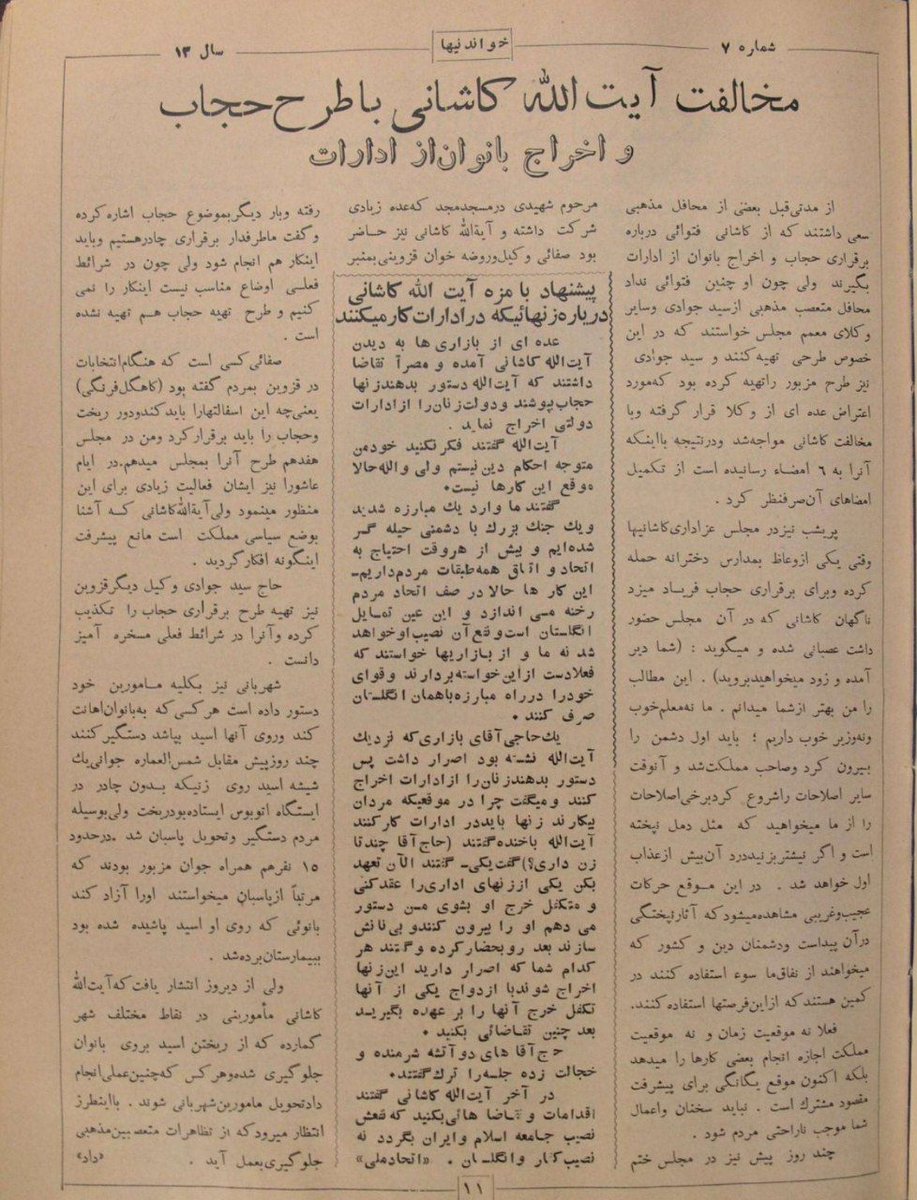 شماره ۷
خواندنیها
سال ۱۳
مخالفت آیت الله کاشانی با طرح حجاب
و اخراج بانوان از ادارات
از مدتی قبل بعضی از محافل مذهبی
سعی داشتند که از کاشانی فتوائی درباره
برقراری حجاب و اخراج بانوان از ادارات
بگیرند ولی چون او چنین فتوائی نداد
محافل متعصب مذهبی از سید جوادی و سایر
وکلای معمم مجلس خواستند که در این
خصوص طرحی تهیه کنند و سید جوادی
نیز طرح مزبور را تهیه کرده بود که مورد
اعتراض عده ای از وکلا قرار گرفته و با
مخالفت کاشانی مواجه شد و در نتیجه با اینکه
آنرا به ۶ امضاء رسانیده است از تکمیل
امضاهای آن صرفنظر کرد .
پریشب نیز در مجلس عزاداری کاشانیها
وقتی یکی از وعاظ بمدارس دخترانه حمله
کرده و برای برقراری حجاب فریاد میزد
ناگهان کاشانی که در آن مجلس حضور
داشت عصبانی شده و میگوید : (شما دیر
آمده و زود میخواهید بروید) . این مطالب
را من بهتر از شما میدانم . ما نه معلم خوب
و نه وزیر خوب داریم ؛ باید اول دشمن را
بیرون کرد و صاحب مملکت شد و آنوقت
سایر اصلاحات را شروع کرد برخی اصلاحات
را از ما میخواهید که مثل دمل نپخته
است و اگر نیشتر بزنید درد آن بیش از عذاب
اول خواهد شد . در این موقع حرکات
عجیب و غریبی مشاهده میشود که آثار پختگی
در آن پیداست و دشمنان دین و کشور که
میخواهند از نفاق ما سوء استفاده کنند در
کمین هستند که از این فرصتها استفاده کنند.
فعلا نه موقعیت زمان و نه موقعیت
مملکت اجازه انجام بعضی کارها را میدهد
بلکه اکنون موقع یگانگی برای پیشرفت
مقصود مشترك است . نباید سخنان و اعمال
شما موجب ناراحتی مردم شود .
چند روز پیش نیز در مجلس ختم
مرحوم شهیدی در مسجد مجد که عده زیادی
شرکت داشته و آیة‌الله کاشانی نیز حاضر
بود صفائی وکیل و روضه خوان قزوینی بمنبر
پیشنهاد با مزه آیت الله کاشانی
درباره زنهائیکه در ادارات کار میکنند
عده ای از بازاری ها به دیدن
آیت‌الله کاشانی آمده و مصرآ تقاضا
داشتند که آیت‌الله دستور بدهند زنها
حجاب پوشند و دولت زنان را از ادارات
دولتی اخراج نماید .
آیت‌الله گفتند فکر نکنید خود من
متوجه احکام دین نیستم ولی والله حالا
موقع این کارها نیست.
گفتند ما وارد یك مبارزه شدید
و یك جنك بزرك با دشمنی حیله گر
شده‌ایم و بیش از هر وقت احتیاج به
اتحاد و اتفاق همه طبقات مردم داریم-
این کار ها حالا در صف اتحاد مردم
رخنه می اندازد و این عین تمایل
انگلستان است و نفع آن نصیب او خواهد
شد نه ما و از بازاریها خواستند که
فعلا دست از این خواسته بردارند و قوای
خود را در راه مبارزه با همان انگلستان
صرف کنند .
یك حاجی آقای بازاری که نزدیك
آیت‌الله نشسته بود اصرار داشت پس
دستور بدهند زنان را از ادارات اخراج
کنند و میگفت چرا در موقعیکه مردان
بیکارند زنها باید در ادارات کار کنند
آیت‌الله باخنده گفتند (حاج آقا چند تا
زن داری؟) گفت یکی- گفتند الآن تعهد
بکن یکی از زنهای اداری را عقد کنی
و متکفل خرج او بشوی من دستور
می دهم او را بیرون کنند و بی نانش
سازند بعد رو بحضار کرده و گفتند هر
کدام شما که اصرار دارید این زنها
اخراج شوند با ازدواج یکی از آنها
تکفل خرج آنها را بر عهده بگیرید
بعد چنین تقاضائی بکنید .
حج آقا های دو آتشه شرمنده و
خجالت زده جلسه را ترك گفتند.
در آخر آیت‌الله کاشانی گفتند
اقدامات و تقاضا هائی بکنید که نفعش
نصیب جامعه اسلام و ایران بگردد نه
نصیب کفار و انگلستان . «اتحاد ملی»
رفته و بار دیگر بموضوع حجاب اشاره کرده
و گفت ما طرفدار برقراری چادر هستیم و باید
اینکار هم انجام شود ولی چون در شرائط
فعلی اوضاع مناسب نیست اینکار را نمی
کنیم و طرح تهیه حجاب هم تهیه نشده
است .
صفائی کسی است که هنگام انتخابات
در قزوین بمردم گفته بود (کاهگل فرنگی)
یعنی چه این اسفالتها را باید کند و دور ریخت
و حجاب را باید برقرار کرد و من در مجلس
هفدهم طرح آنرا بمجلس میدهم. در ایام
عاشورا نیز ایشان فعالیت زیادی برای این
منظور مینمود ولی آیة‌الله کاشانی که آشنا
بوضع سیاسی مملکت است مانع پیشرفت
اینگونه افکار گردید .
حاج سید جوادی وکیل دیگر قزوین
نیز تهیه طرح برقراری حجاب را تکذیب
کرده و آنرا در شرائط فعلی مسخره آمیز
دانست .
شهربانی نیز بکلیه مامورین خود
دستور داده است هر کسی که به بانوان اهانت
کند و روی آنها اسید بپاشد دستگیر کنند
چند روز پیش مقابل شمس‌العماره جوانی یك
شیشه اسید روی زنیکه بدون چادر در
ایستگاه اتوبوس ایستاده بود ریخت ولی بوسیله
مردم دستگیر و تحویل پاسبان شد .در حدود
۱۵ نفر هم همراه جوان مزبور بودند که
مرتباً از پاسبان میخواستند او را آزاد کند
بانوئی که روی او اسید پاشیده شده بود
ببیمارستان برده شد .
ولی از دیروز انتشار یافت که آیت‌الله
کاشانی مأمورینی در نقاط مختلف شهر
گمارده که از ریختن اسید بروی بانوان
جلوگیری شده و هر کس که چنین عملی انجام
داد تحویل مامورین شهربانی شوند . با اینطرز
انتظار میرود که از تظاهرات متعصبین مذهبی
جلوگیری بعمل آید . «داد»
۱۱